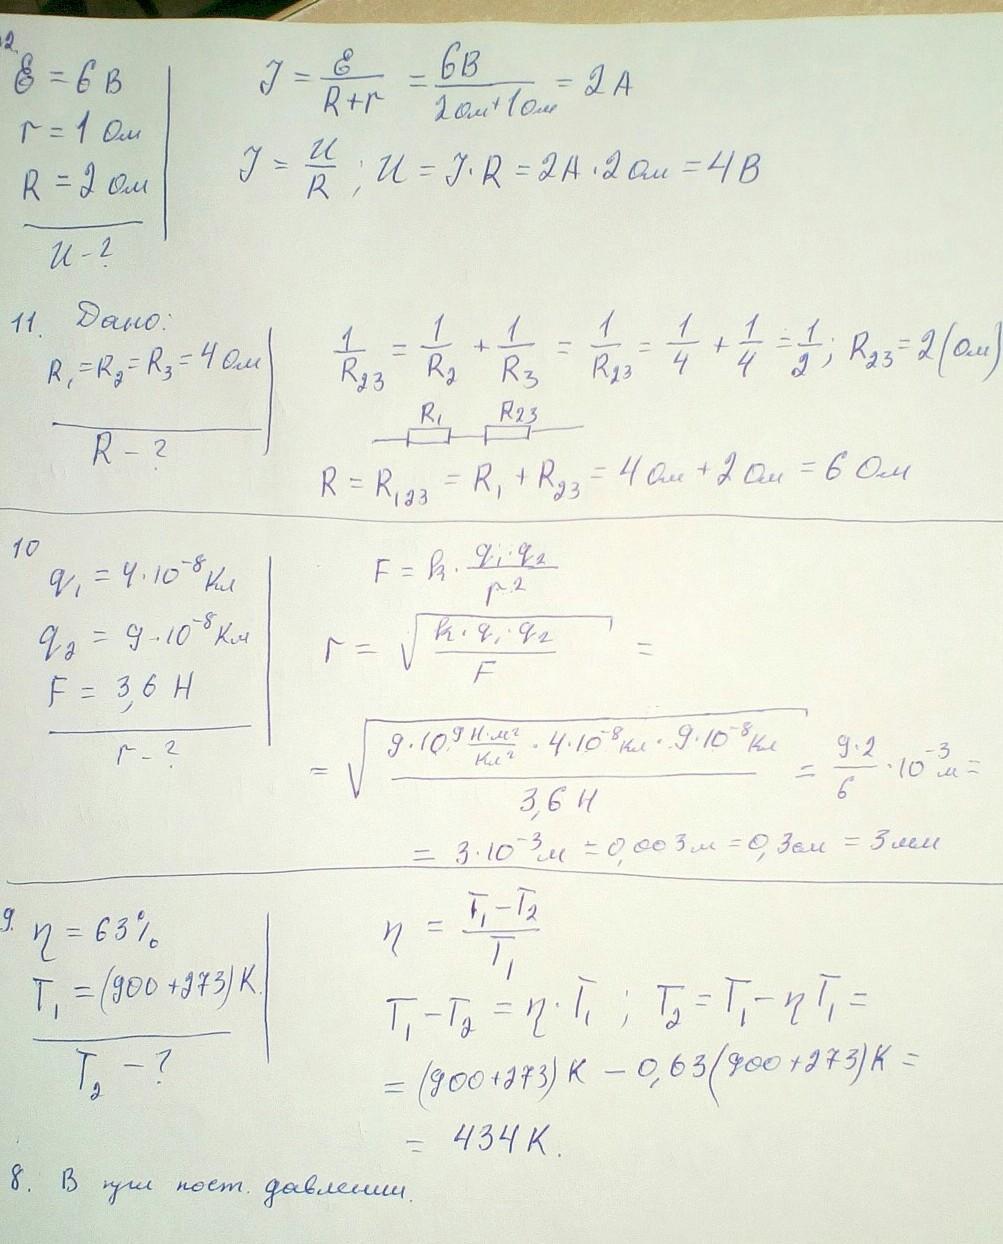 12.
ℰ = 6 В
r = 1 Ом
R = 2 Ом
U - ?
J = ℰ/(R+r) = 6В/(2 Ом+1 Ом) = 2 А
J = U/R ; U = J·R = 2А·2 Ом = 4 В
11. Дано:
R₁=R₂=R₃=4 Ом
R - ?
1/R₂₃ = 1/R₂ + 1/R₃ = 1/R₂₃ = 1/4 + 1/4 = 1/2; R₂₃=2 (Ом)
R₁ R₂₃
R = R₁₂₃ = R₁ + R₂₃ = 4 Ом + 2 Ом = 6 Ом
10
q₁ = 4·10⁻⁸ Кл
q₂ = 9·10⁻⁸ Кл
F = 3,6 Н
r - ?
F = k · q₁·q₂/r²
r = √(k·q₁·q₂/F) =
= √(9·10⁹ Н·м²/Кл² · 4·10⁻⁸ Кл · 9·10⁻⁸ Кл/3,6 Н) = 9·2/6 · 10⁻³ м =
= 3·10⁻³ м = 0,003 м = 0,3 см = 3 мм
9. η = 63%
T₁ = (900+273) К.
T₂ - ?
η = (T₁-T₂)/T₁
T₁-T₂ = η·T₁ ; T₂ = T₁ - ηT₁ =
= (900+273) К - 0,63(900+273) К =
= 434 К.
8. В при пост. давлении.